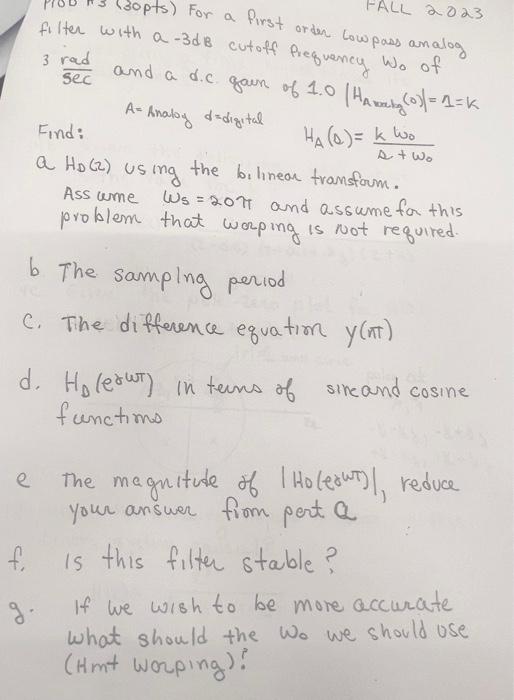 Prob #3 (30pts) For a first order Lowpass analog
FALL 2023
filter with a -3dB cutoff frequency Wo of
3 rad/sec and a d.c. gain of 1.0 |HAnalog(0)| = 1 = K
A = Analog d = digital
Find: HA(s) = k Wo / s + Wo
a HD(z) using the bilinear transform.
Assume Ws = 20π and assume for this
problem that warping is not required.
b The samplng period
c. The difference equation y(nT)
d. HD(ejωT) in terms of sine and cosine
functions
e The magnitude of |HD(ejωT)|, reduce
your answer from part a
f. is this filter stable?
g. If we wish to be more accurate
what should the Wo we should use
(Hint warping)?